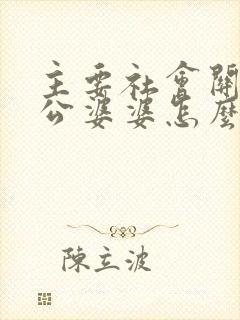 主要社會關
公婆婆怎麼
陳立波